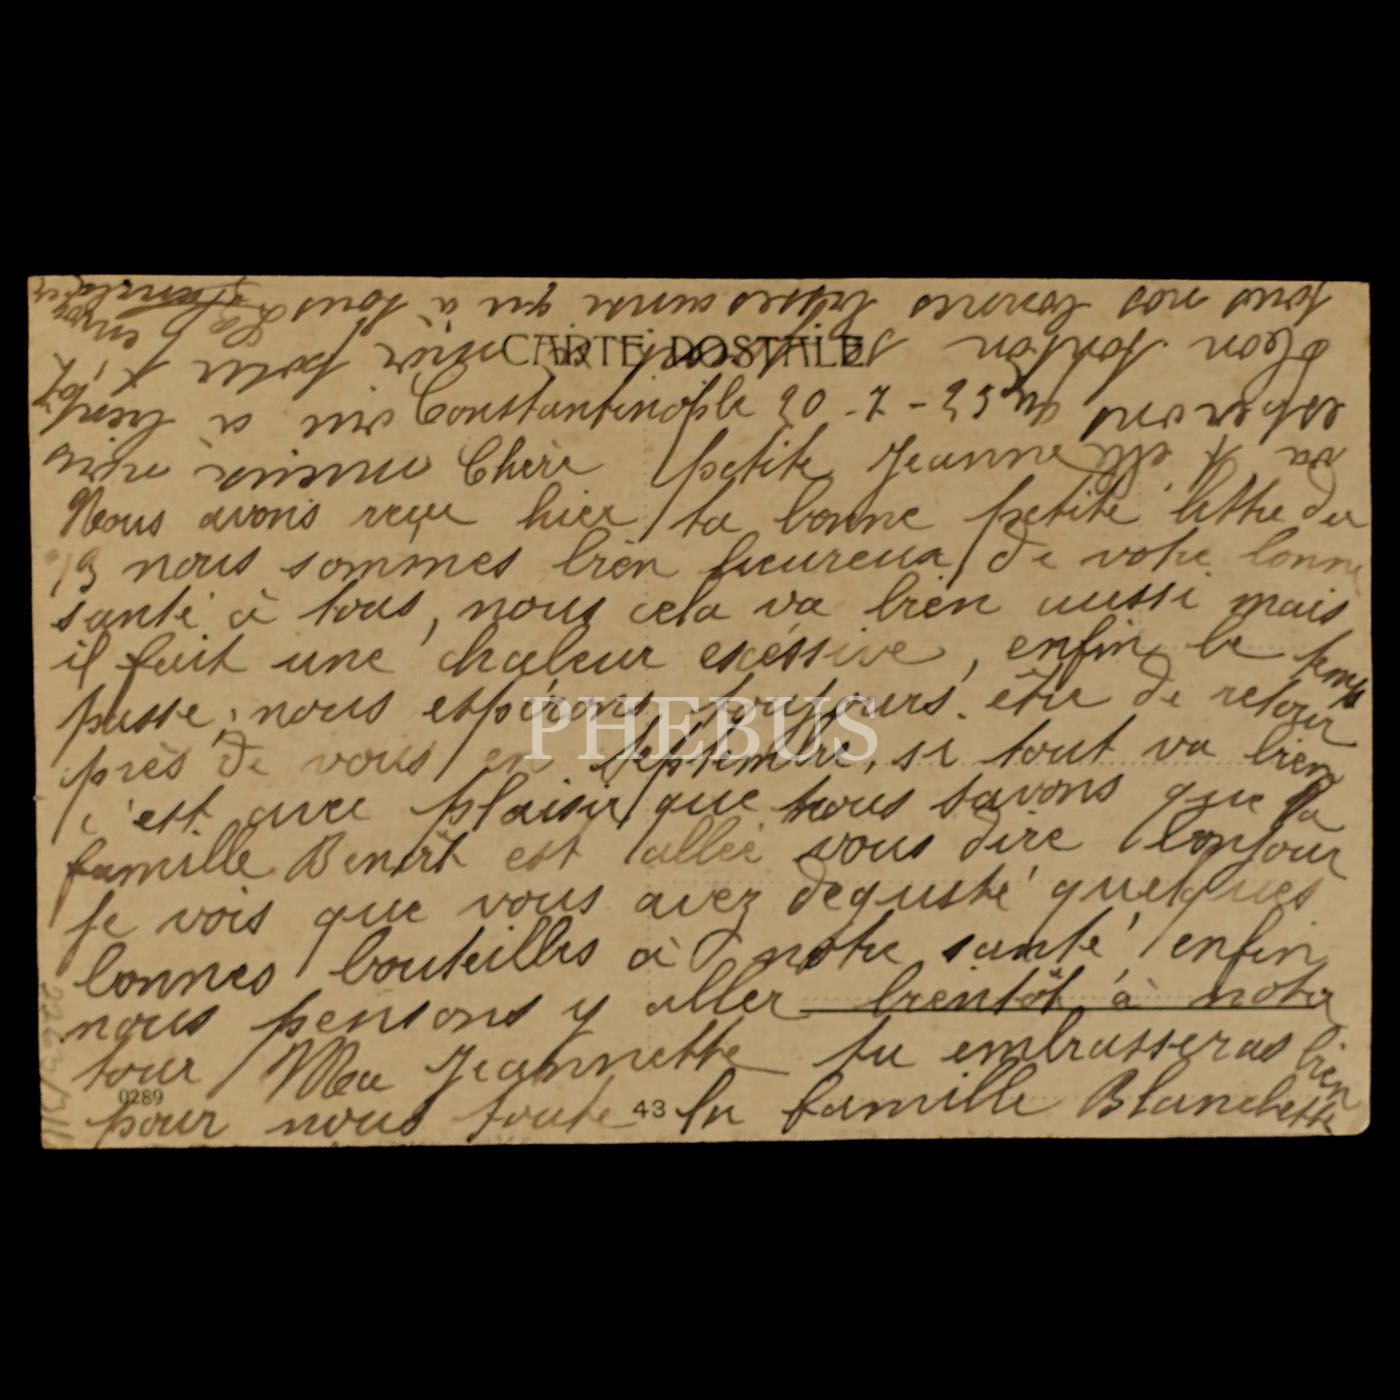 CARTE POSTALE
Constantinople 20-7-23
Chère petite Jeanne
Nous avons reçu hier ta bonne petite lettre du
13 nous sommes bien heureux de votre bonne
santé à tous, nous cela va bien aussi mais
il fait une chaleur exéssive, enfin le temps
passe, nous espérons toujours être de retour
près de vous en Septembre, si tout va bien
c'est avec plaisir que nous savons que la
famille Benoit est allée vous dire bonjour
je vois que vous avez dégusté quelques
bonnes bouteilles à notre santé, enfin
nous pensons y aller bientôt à notre
tour Ma Jeannette tu embrasseras bien
pour nous toute la famille Blanchette
va t'elle mieux nous
espérons que oui à bientôt
Léon Tonton pour t'envoyer
tous nos bonnes baisers ainsi qu'à tous
PHEBUS
0289
43